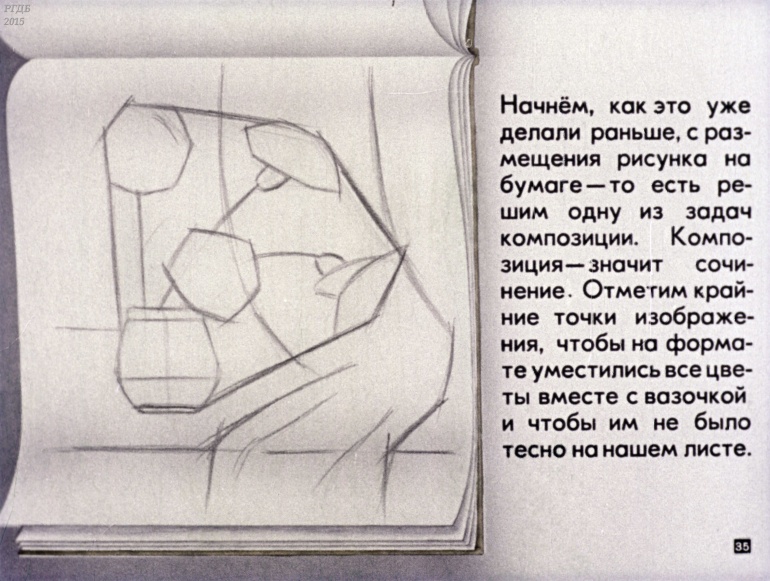 РГДБ
2015
Начнём, как это уже
делали раньше, с раз-
мещения рисунка на
бумаге—то есть ре-
шим одну из задач
композиции. Компо-
зиция—значит сочи-
нение. Отметим край-
ние точки изображе-
ния, чтобы на форма-
те уместились все цве-
ты вместе с вазочкой
и чтобы им не было
тесно на нашем листе.
35